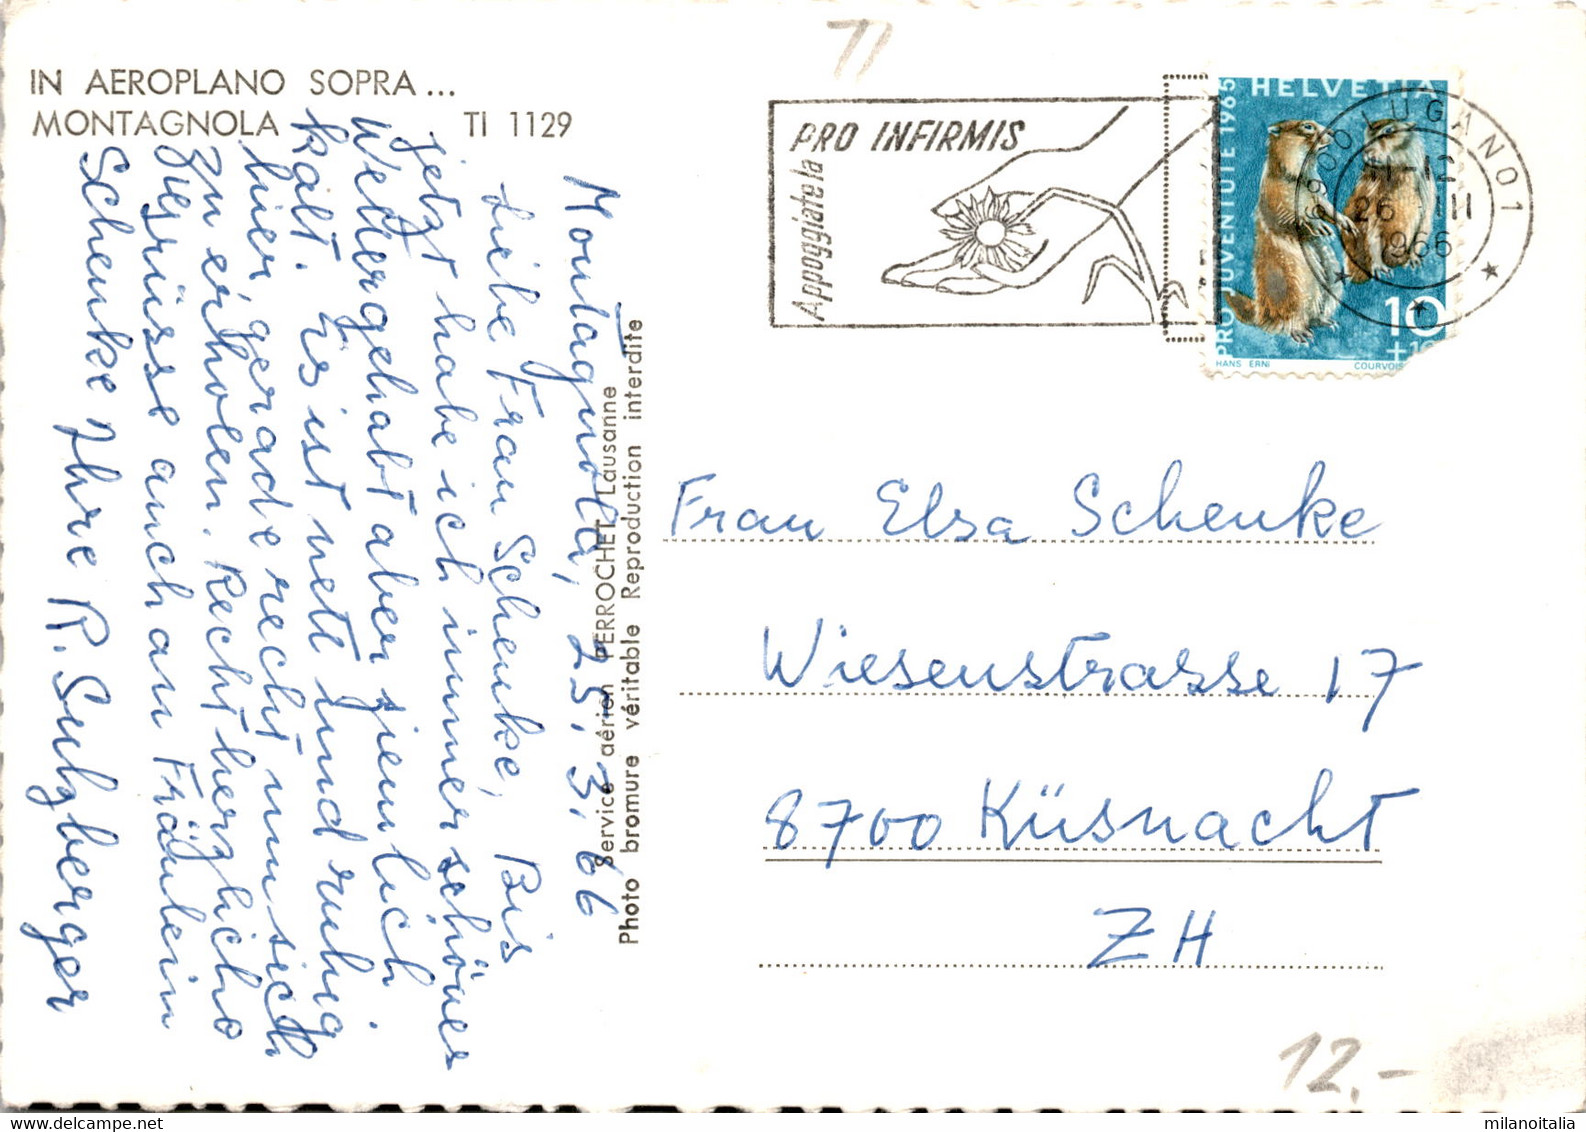 IN AEROPLANO SOPRA...
MONTAGNOLA TI 1129
Montagnola, 25.3.66
Liebe Frau Schenke, Bis
jetzt habe ich immer schönes
Wetter gehabt aber ziemlich
kalt. Es ist nett und ruhig
hier gerade recht um sich
zu erholen. Recht herzliche
Grüsse auch an Fräulein
Schenke Ihre R. Sulzberger
Service aérien PERROCHET Lausanne
Photo bromure véritable Reproduction interdite
71
PRO INFIRMIS
Appoggiate la
HELVETIA
PRO JUVENTUTE 1965
10
HANS ERNI
6900 LUGANO 1
11-12
1966
Frau Elsa Schenke
Wiesenstrasse 17
8700 Küsnacht
ZH
12.-
milanoitalia